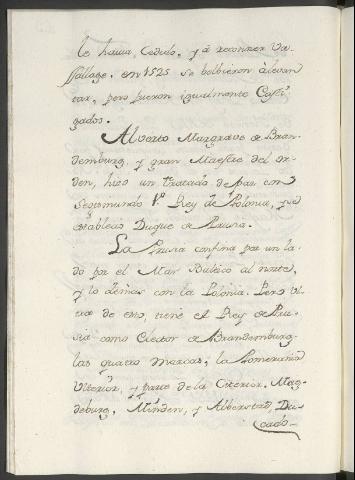 le havia Cedido, y á reconozer Va-
ssallage. en 1525 se bolbieron á levan
tar, pero fueron igualmente Casti
gados.
Alverto Margrave de Bran-
demburg, y gran Maestre del or-
den, hizo un tratado de paz con
Segismundo 1º Rey de Polonia, y se
establecio Duque de Prusia.
La Prusia confina por un la-
do por el Mar Baltico al norte,
y lo demas con la Polonia. Pero ul
tra de esto, tiene el Rey de Pru-
sia como Elector de Brandemburg
las quatro marcas, la Pomerania
Ulterior, y parte de la Citerior, Mag-
deburg, Minden, y Alberstad, Du-
cado